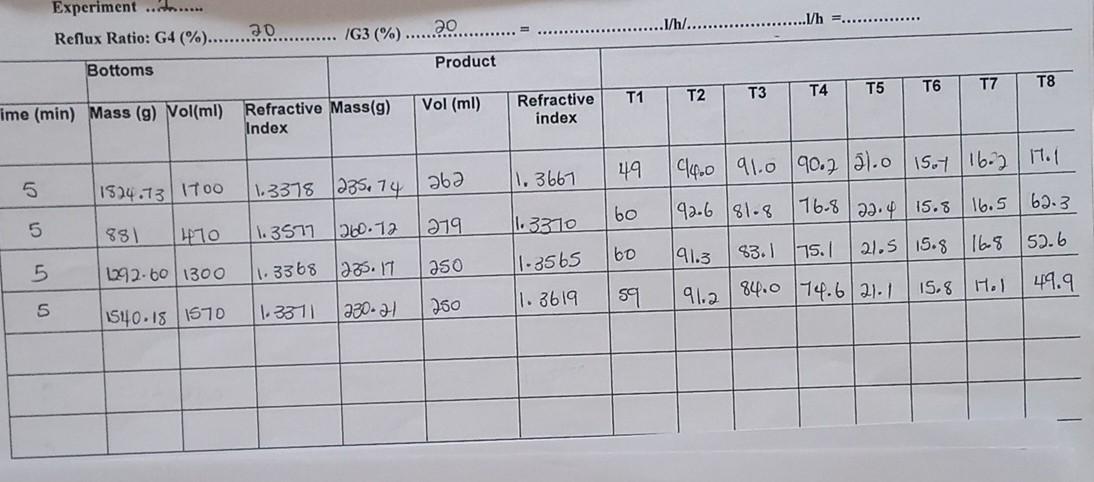 Experiment ..1......
Reflux Ratio: G4 (%)......20............... /G3 (%) .......20............... = ..........................l/h/.........................l/h =...............
Bottoms Product
ime (min) Mass (g) Vol(ml) Refractive Index Mass(g) Vol (ml) Refractive index T1 T2 T3 T4 T5 T6 T7 T8
5 1824.73 1700 1.3378 235.74 262 1.3667 49 94.0 91.0 90.2 21.0 15.7 16.2 17.1
5 881 470 1.3577 260.72 279 1.3370 60 92.6 81.8 76.8 22.4 15.8 16.5 62.3
5 1292.60 1300 1.3368 235.17 250 1.3565 60 91.3 83.1 75.1 21.5 15.8 16.8 52.6
5 1540.18 1570 1.3371 230.21 250 1.3619 59 91.2 84.0 74.6 21.1 15.8 17.1 49.9